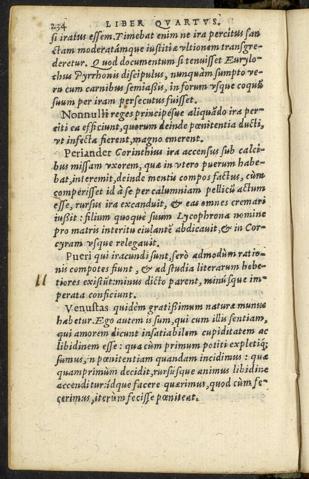 234 LIBER QVARTVS.
si iratus essem. Timebat enim ne ira percitus san
ctam moderatámque iustitiæ vltionem transgre-
deretur. Quod documentum si tenuisset Eurylo-
chus Pyrrhonis discipulus, nunquam sumpto ve-
ru cum carnibus semiassis, in forum vsque coquū
suum per iram persecutus fuisset.
Nonnulli reges principésque aliquādo ira per-
citi ea efficiunt, quorum deinde pœnitentia ducti,
vt infecta fierent, magno emerent.
Periander Corinthius ira accensus sub calci-
bus missam vxorem, quæ in vtero puerum habe-
bat, interemit, deinde mentis compos factus, cùm
comperisset id à se per calumniam pellicū actum
esse, rursus ira excanduit, & eas omnes cremari
iußit: filium quoquè suum Lycophrona nomine
pro matris interitu eiulantē abdicauit, & in Cor-
cyram vsque relegauit.
Pueri qui iracundi sunt, serò admodùm ratio-
nis compotes fiunt, & ad studia literarum hebe-
tiores existūt: minus dicto parent, minúsque im-
perata conficiunt.
Venustas quidèm gratißimum naturæ munus
habetur. Ego autem is sum, qui cum illis sentiam,
qui amorem dicunt insatiabilem cupiditatem ac
libidinem esse: qua cùm primum potiti expletiq;
sumus, in pœnitentiam quandam incidimus: quæ
quamprimùm decidit, rursúsque animus libidine
accenditur: idque facere quærimus, quod cùm fe-
cerimus, iterùm fecisse pœniteat.